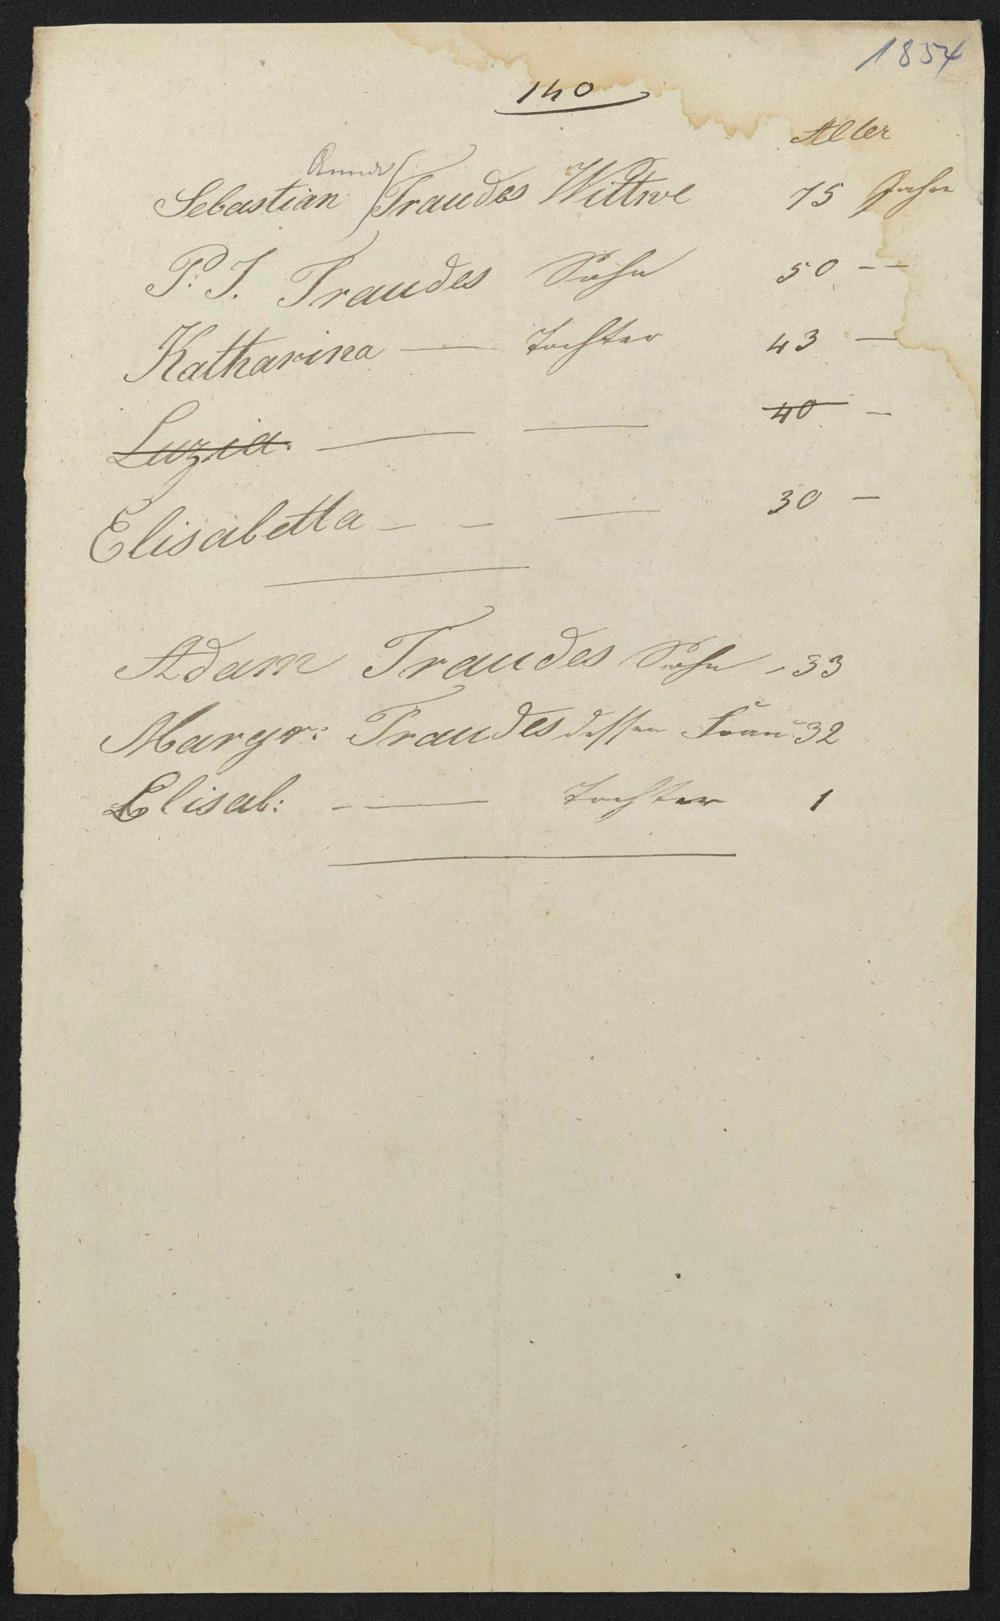 1854
140
Alter
Anna
Sebastian Traudes Wittwe 75 Jahre
P. J. Traudes Sohn 50 — —
Katharina — Tochter 43 —
Luzia. — — 40 —
Elisabetta — — — 30 —
Adam Traudes Sohn 33
Margr: Traudes dessen Frau 32
Elisab: — Tochter 1